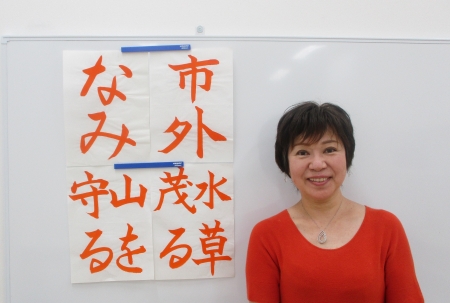 市外
なみ
水草
茂る
山を
守る